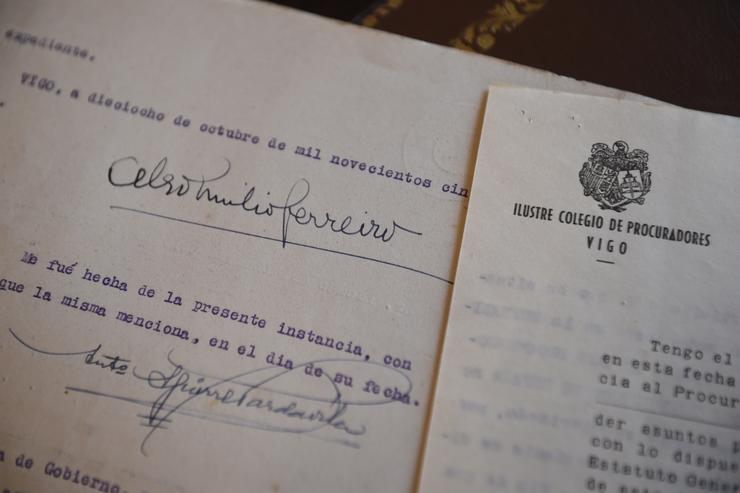 expediente.
VIGO, a dieciocho de octubre de mil novecientos cin
Celso Emilio Ferreiro
Me fué hecha de la presente instancia, con
que la misma menciona, en el día de su fecha.
a de Gobierno,
ILUSTRE COLEGIO DE PROCURADORES
VIGO
Tengo el
en esta fecha
cia al Procur
der asuntos
con lo dispue
Estatuto Gene